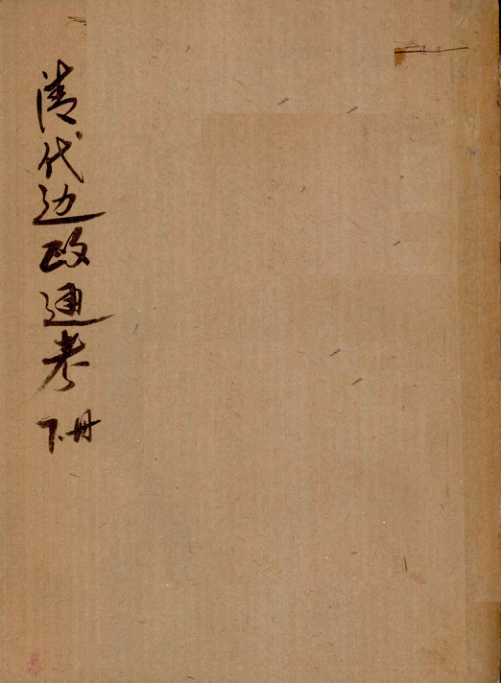 清代边政通考 下册